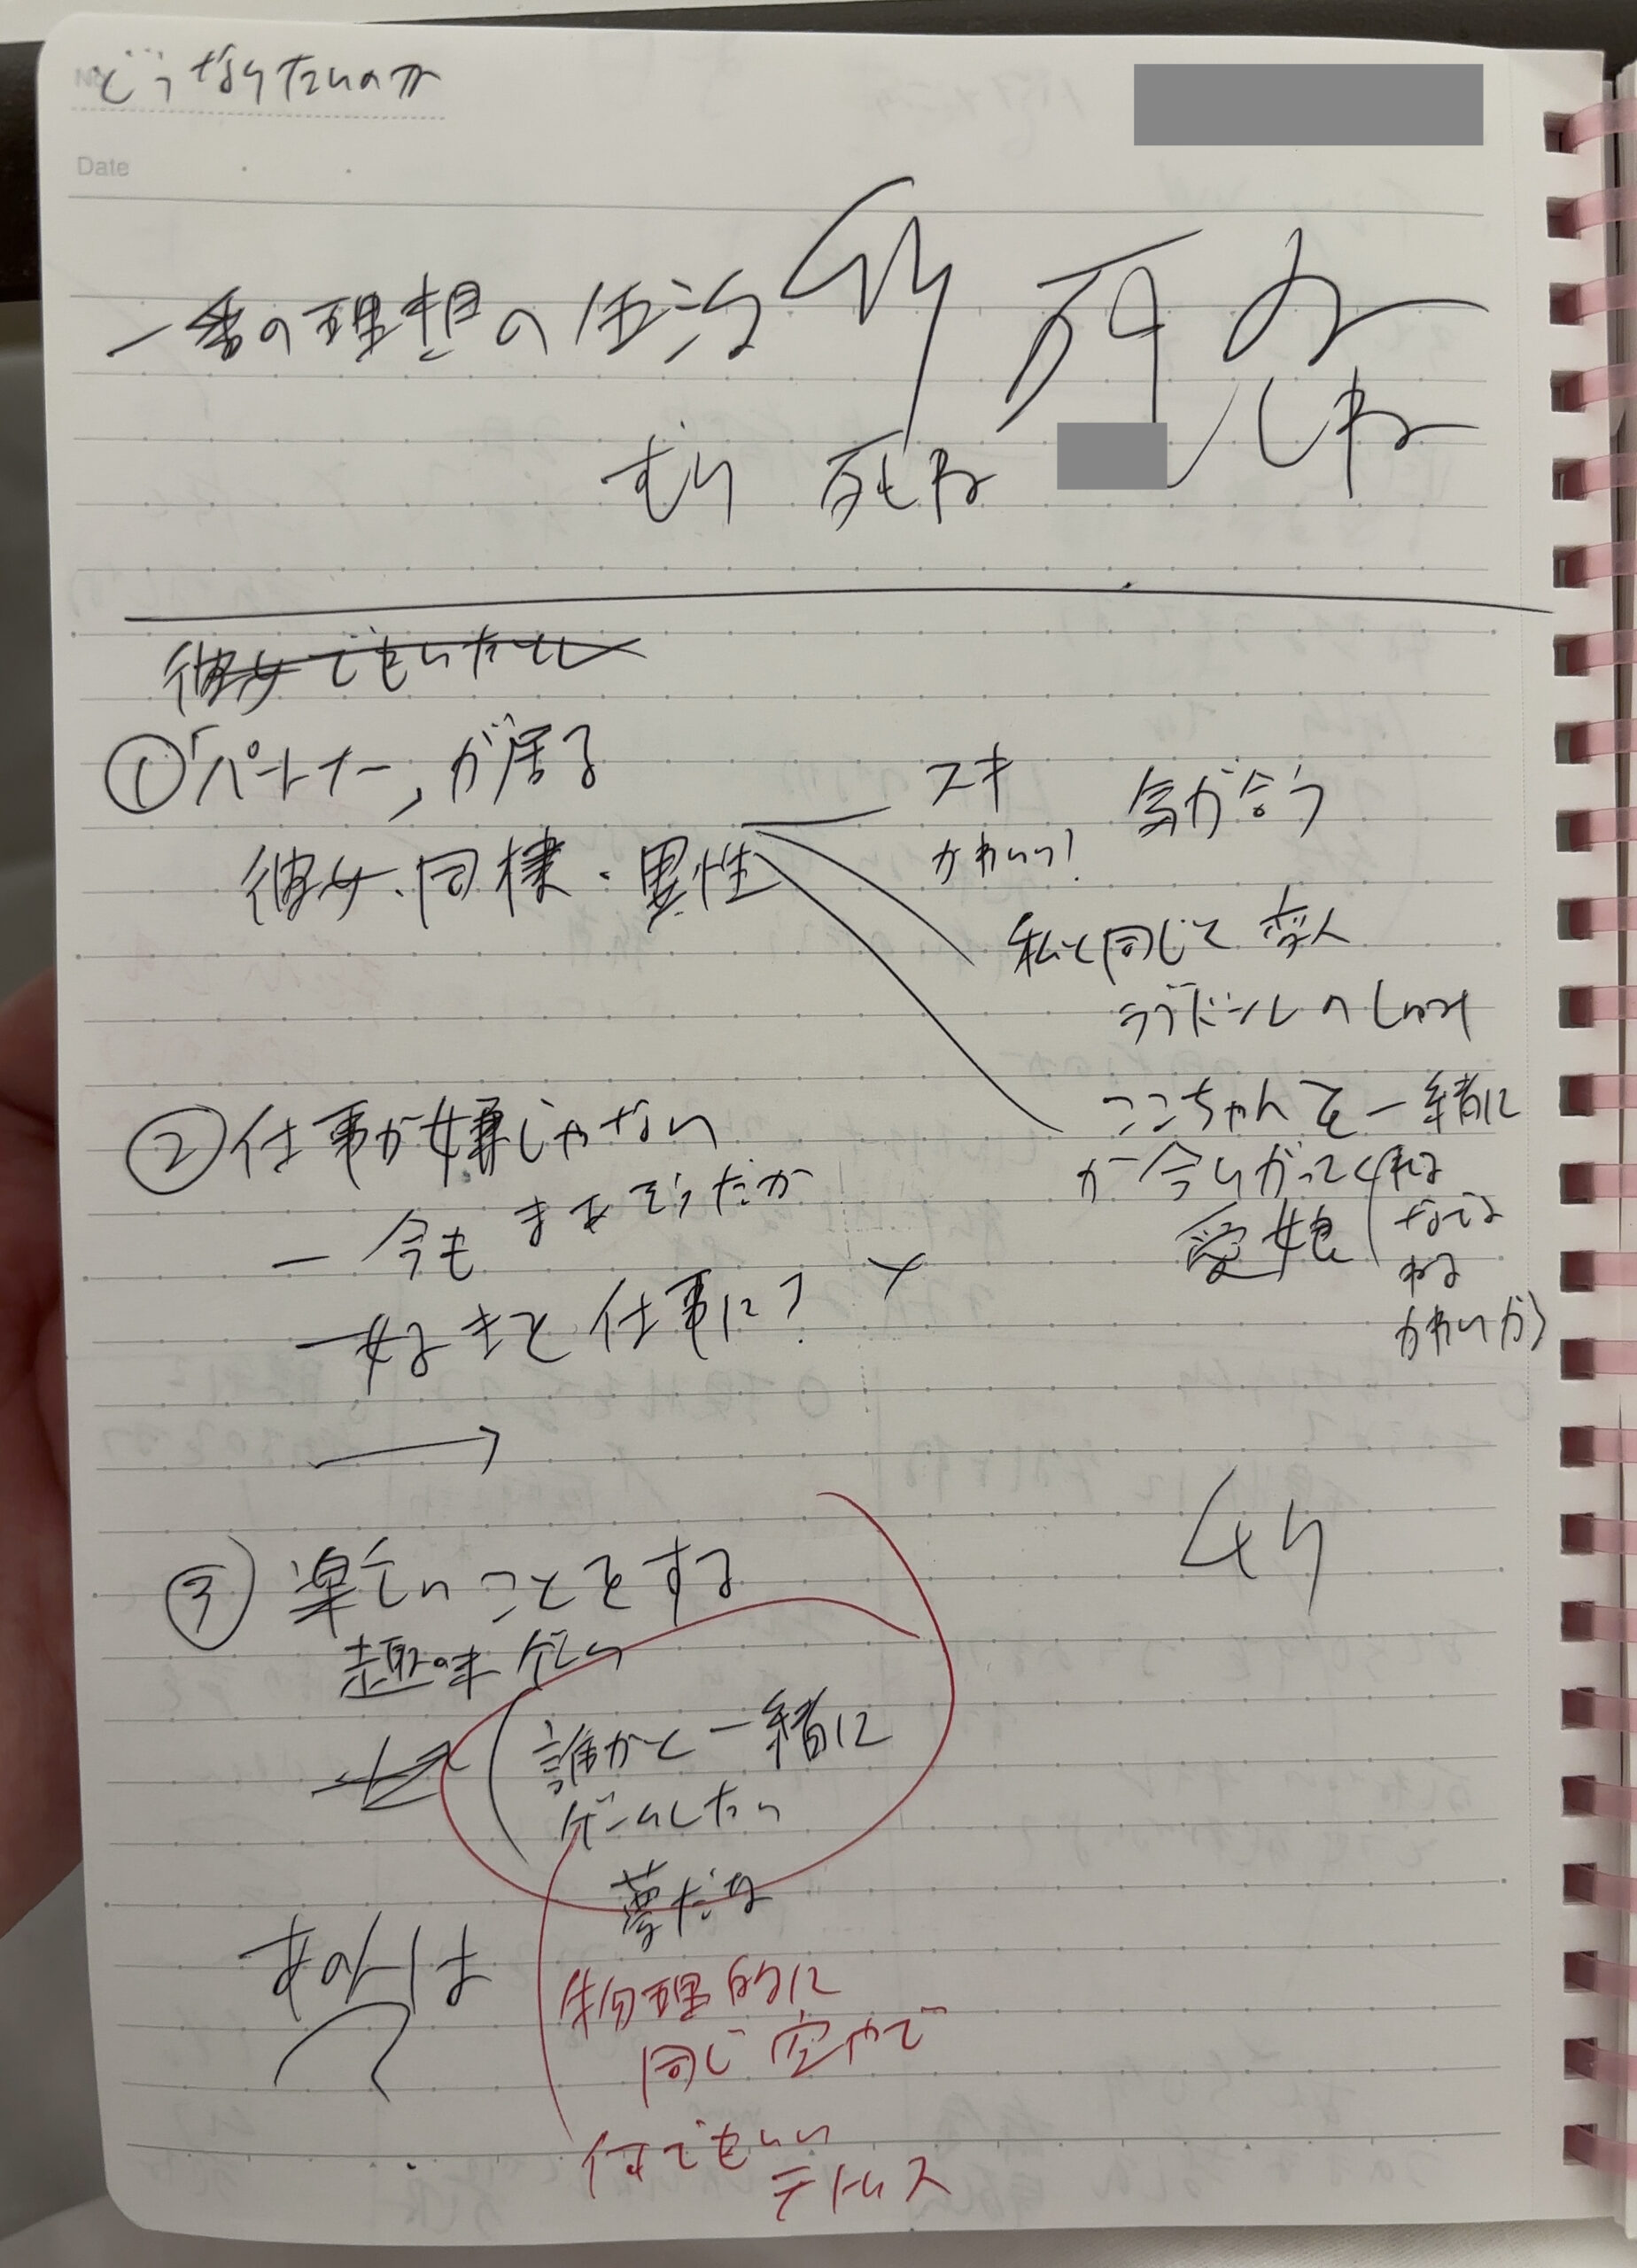 どうなりたいのか
Date
一番の理想の生活
死ね
しね
むり 死ね
彼女でもいたらなし
①「パートナー」が居る
彼女・同棲・異性
スキ
かわいい! 気が合う
私と同じで変人
ラブドールの
ここちゃんを一緒に
かわいがってくれる
愛娘
なでる
ねる
かわいがる
②仕事が嫌じゃない
― 今も まあそうだが
― 好きを仕事に? ×
→
③楽しいことをする
趣味 ゲーム
誰かと一緒に
ゲームしたい
夢だな
物理的に
同じ空間で
何でもいい
テトリス